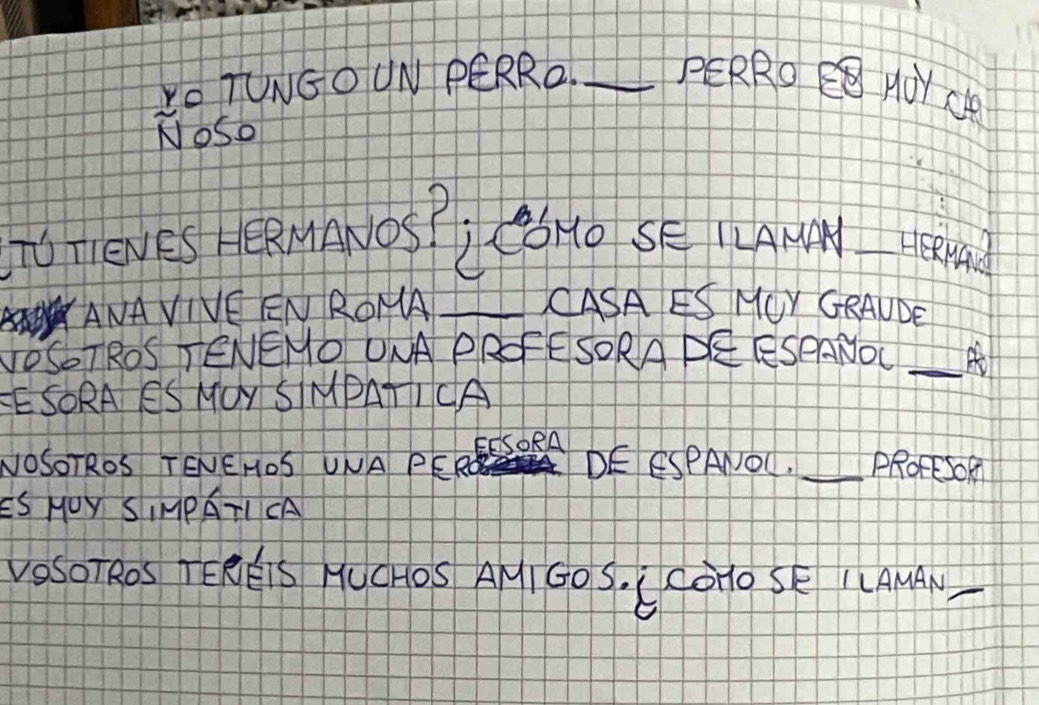 YO TUNGO UN PERRO. ___ PERRO ES MUY CA
ÑOSO
¿TÚ TIENES HERMANOS? ¿CÓMO SE LLAMAN ___ HERMANOS?
ANA VIVE EN ROMA ___ CASA ES MUY GRANDE
NOSOTROS TENEMO UNA PROFESORA DE ESPAÑOL ___
FESORA ES MUY SIMPATICA
NOSOTROS TENEMOS UNA PEROFESORA DE ESPANOL. ___ PROFESORA
ES MUY SIMPÁTICA
VOSOTROS TENÉIS MUCHOS AMIGOS. ¿CÒMO SE LLAMAN ___